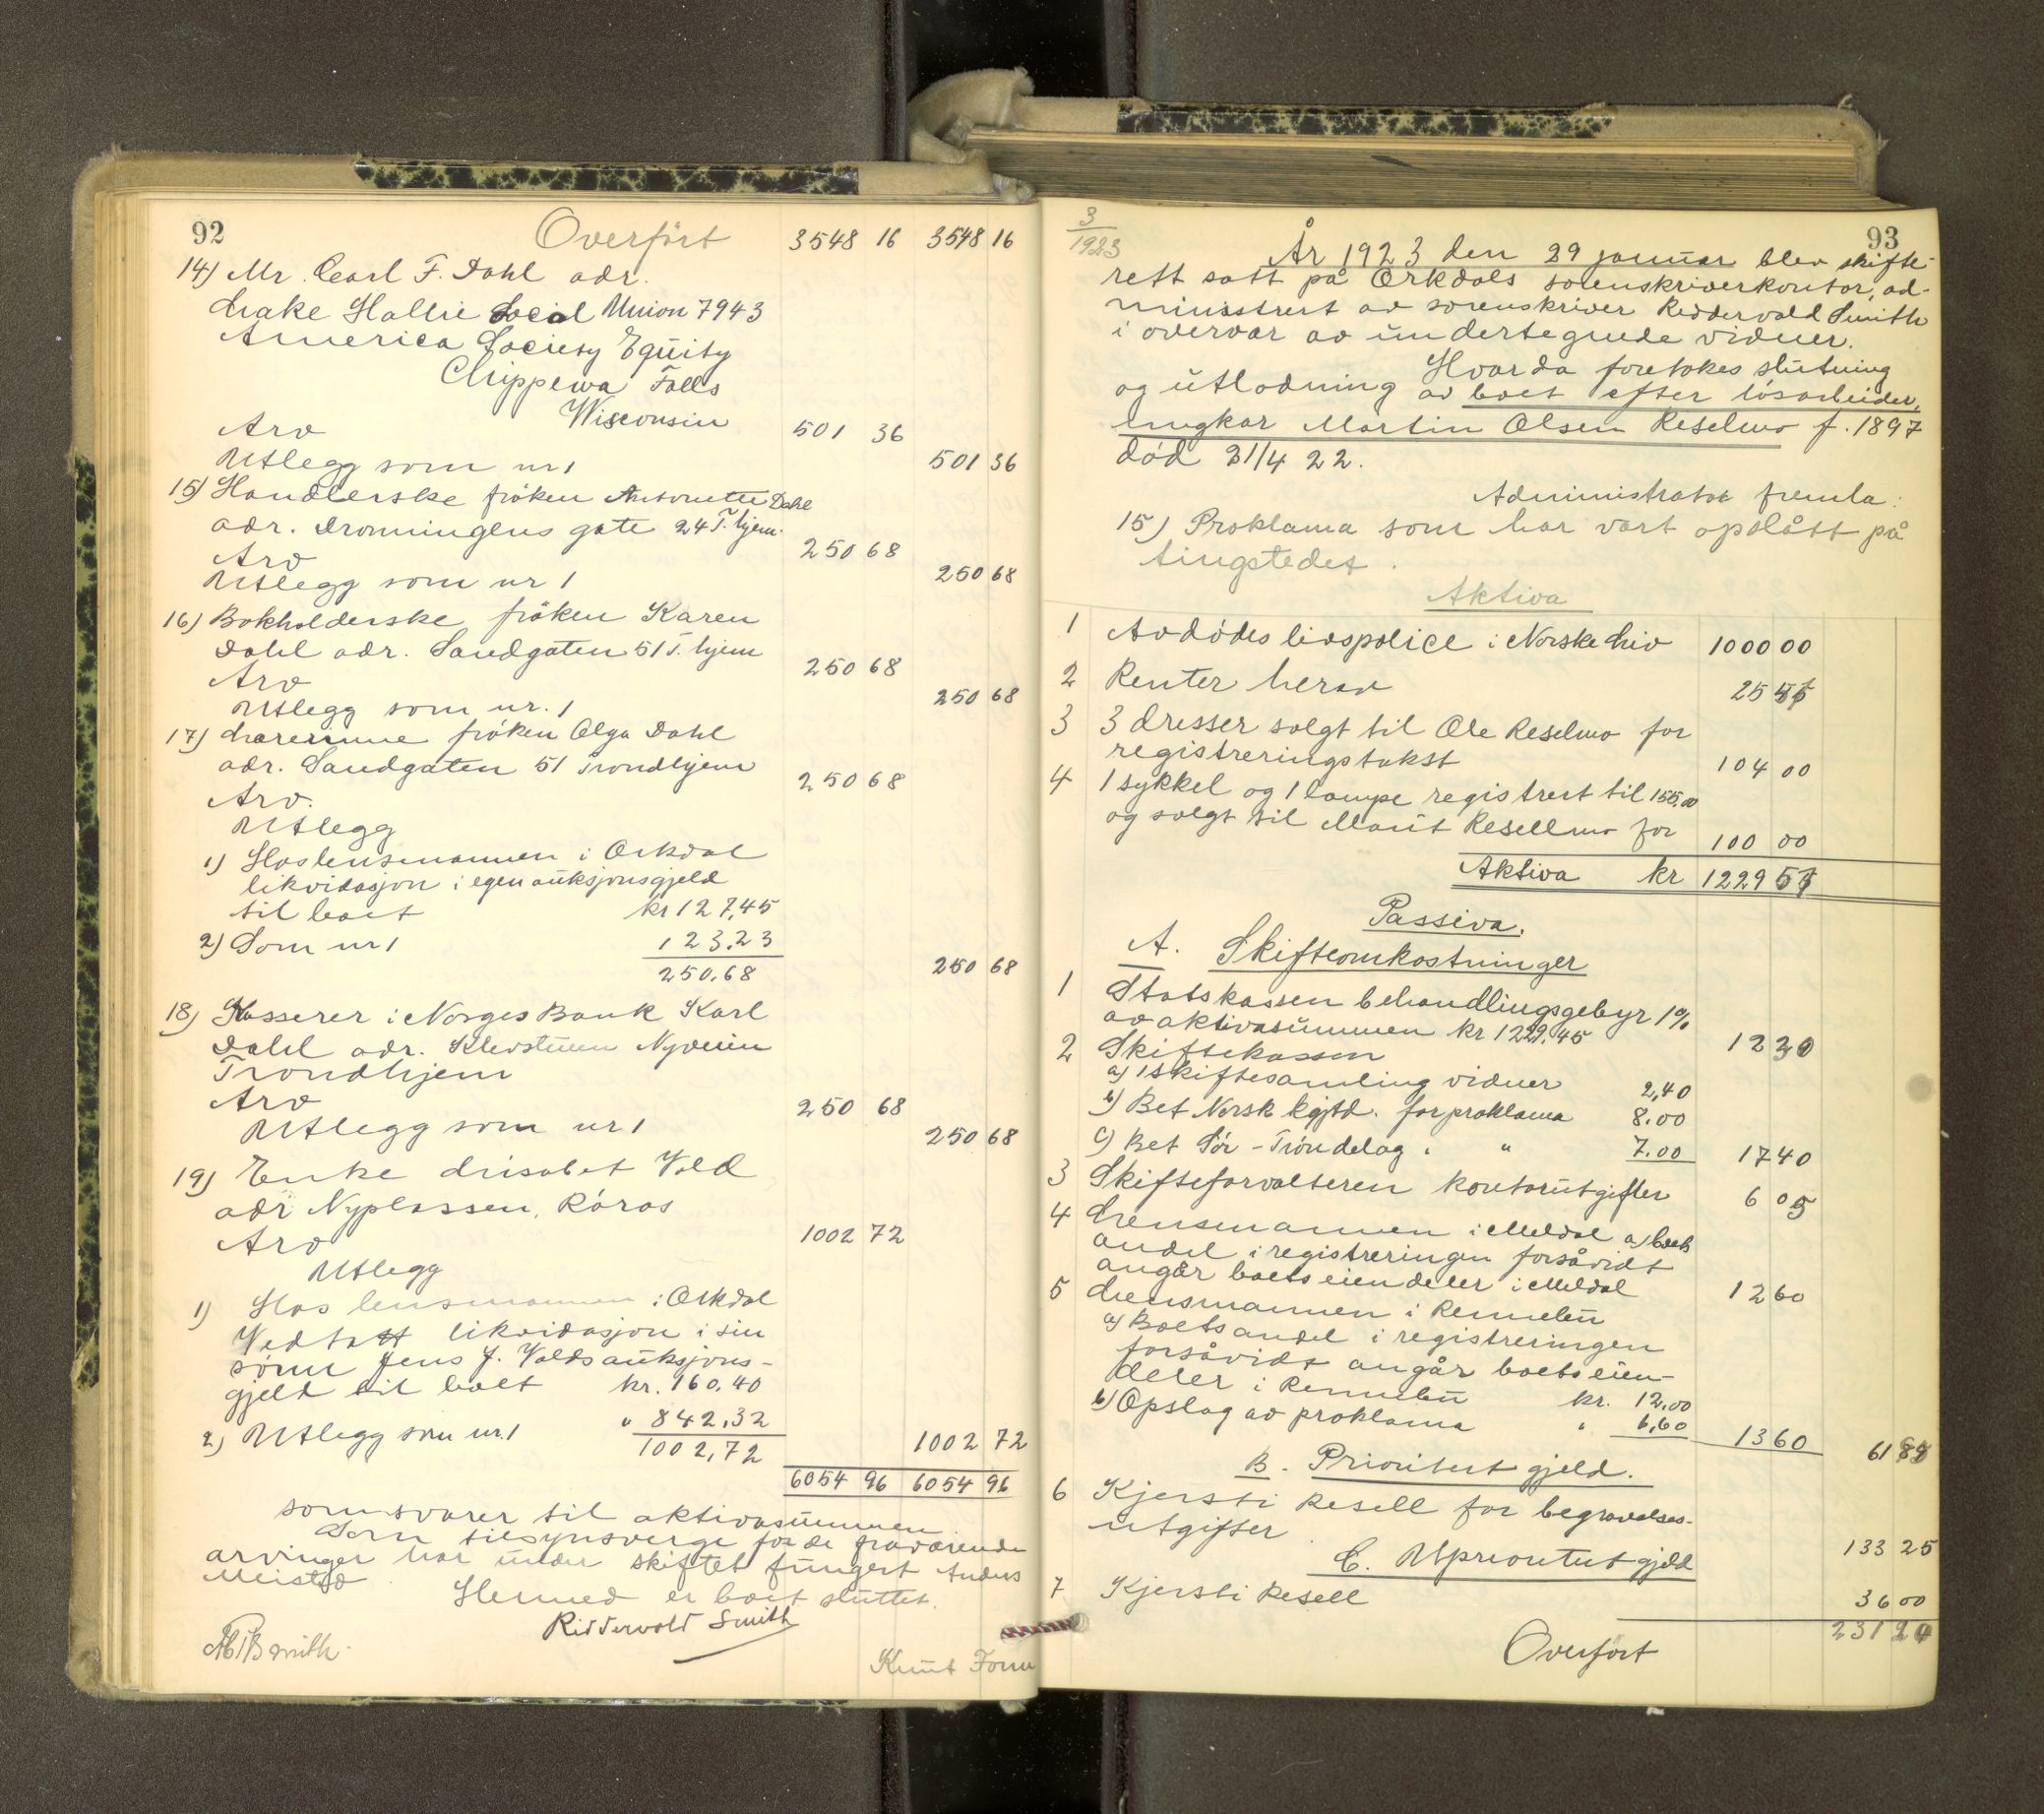 92
Overfört 3548 16 3548 16
14) Mr. Carl F. Dahl adr.
Lake Hallie Local Union 7943
America Society Equity
Chippewa Falls
Wisconsin
Arv 501 36
Utlegg som nr 1 501 36
15) Handlerske fröken Antonette Dahl
adr. Dronningens gate 24 T.hjem.
Arv 250 68
Utlegg som nr 1 250 68
16) Bokholderske fröken Karen
Dahl adr. Sandgaten 51 T.hjem
Arv 250 68
Utlegg som nr. 1 250 68
17) Lærerinne fröken Olga Dahl
adr. Sandgaten 51 Trondhjem
Arv. 250 68
Utlegg
1) Hos lensmannen i Orkdal
likvidasjon i egen auksjonsgjeld
til boet kr 127,45
2) Som nr 1 123.23
250.68 250 68
18) Kasserer i Norges Bank Karl
Dahl adr. Nyveien
Trondhjem
Arv 250 68
Utlegg som nr 1 250 68
19) Enke Lisabet Vold
adr Nyplassen, Röros
Arv 1002 72
Utlegg
1) Hos lensmannen i Orkdal
Vedtatt likvidasjon i sin
sönn Jens J. Volds auksjons-
gjeld til boet kr. 160.40
2) Utlegg som nr. 1 " 842,32
1002,72 1002 72
6054 96 6054 96
som svarer til aktivasummen.
Som tilsynsverge for de fraværende
arvinger har under skiftet fungert Anders
Meistad
Hermed er boet sluttet.
Riddervold Smith
Knut
3/1923
93
År 1923 den 29 januar blev skifte-
rett satt på Orkdals sorenskriverkontor, ad-
ministrert av sorenskriver Riddervold Smith
i overvær av undertegnede vidner.
Hvorda foretokes slutning
og utlodning av boet efter lösarbeider,
ungkar Martin Olsen Reselmo f. 1897
död 21/4 22.
Administrator fremla:
15) Proklama som har vært opslått på
tingstedet.
Aktiva
1 Avdödes livspolice i Norske Liv 1000 00
2 Renter herav 25
3 3 dresser solgt til Ole Reselmo for
registreringstakst 104 00
4 1 sykkel og 1 lampe registrert til 155.00
og solgt til Marit Resellmo for 100 00
Aktiva kr 1229
Passiva.
A. Skifteomkostninger
1 Statskassen behandlingsgebyr 1%
av aktivasummen kr 1229.45 12 30
2 Skiftekassen
a) 1 skiftesamling vidner 2,40
b) Bet Norsk kgjtd. for proklama 8.00
c) Bet Sör-Tröndelag " " 7.00 17 40
3 Skifteforvalteren kontorutgifter 6 05
4 Lensmannen i Meldal a) boets
andel i registreringen forsåvidt
angår boets eiendeler i Meldal 12 60
5 Lensmannen i Rennebu
a) Boets andel i registreringen
forsåvidt angår boets eien-
deler i Rennebu kr. 12,00
b) Opslag av proklama " 13 60 61
B. Prioritert gjeld.
6 Kjersti Resell for begravelses-
utgifter 133 25
C. Uprioritert gjeld
7 Kjersti Resell 36 00
Overfört 231